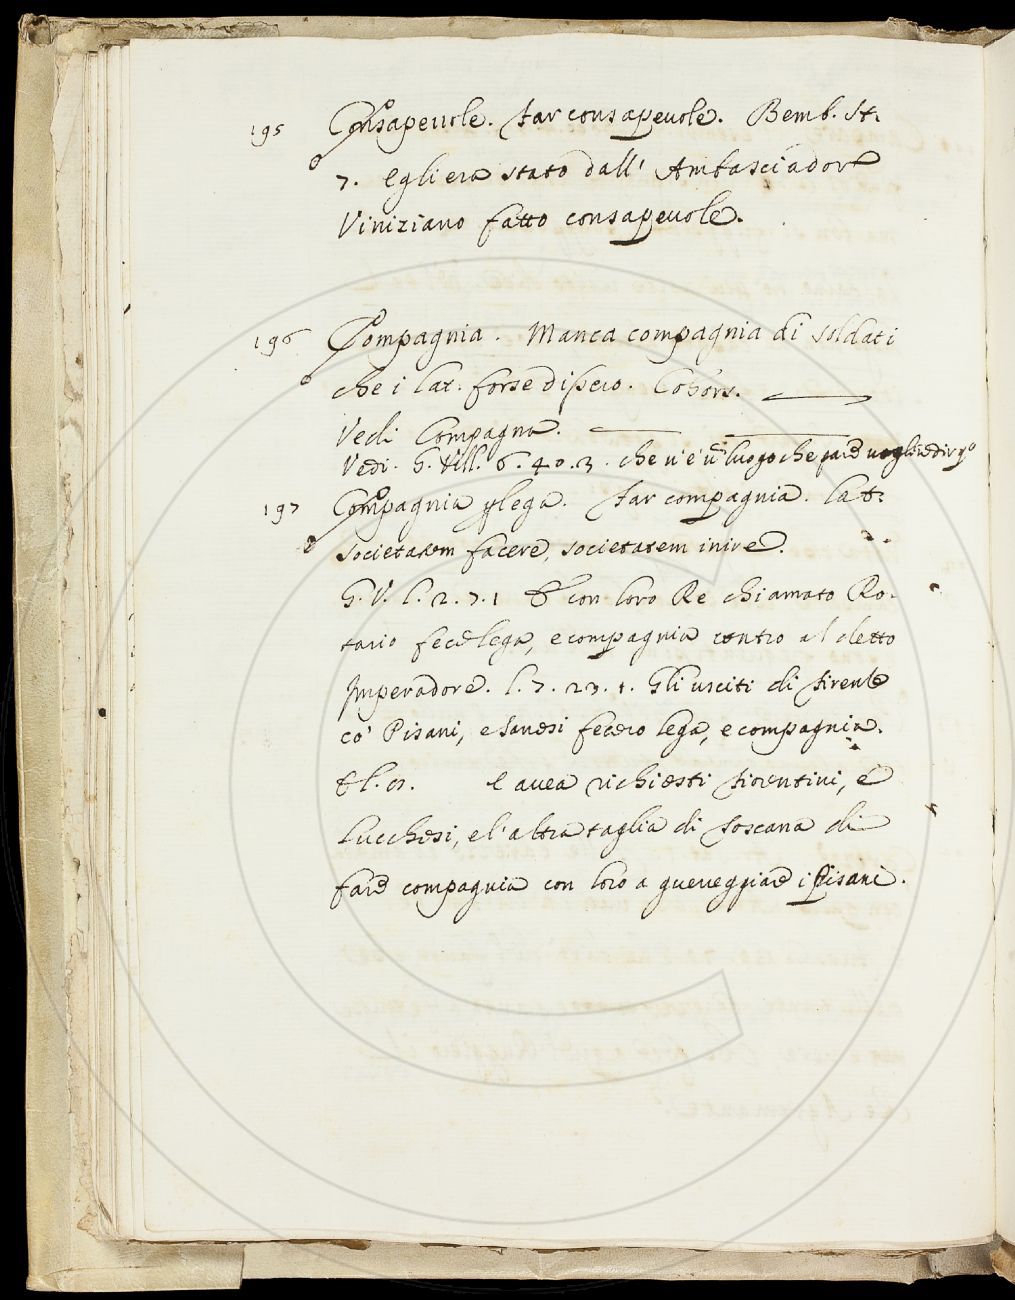 195 Consapeuole. Far consapeuole. Bemb. St.
7. Egli era stato dall' Ambasciadore
Viniziano fatto consapeuole.
196 Compagnia. Manca compagnia di soldati
che i Lat. forse dissero. Cohors.
Vedi Compagna.
Vedi. G. Vill. 6. 40. 3. che u'è un luogo che pare uoglia dir
197 Compagnia p lega. Far compagnia. Lat.
societatem facere, societatem inire.
G. V. l. 2. 7. 1 & con loro Re chiamato Ro-
tario fece lega, e compagnia contro al detto
Imperadore. l. 7. 23. 1. Gli usciti di Firenze
co' Pisani, e Sanesi fecero lega, e compagnia.
& l. E auea richiesti Fiorentini, e
Lucchesi, e l'altra taglia di Toscana di
fare compagnia con loro a guereggiare i Pisani.